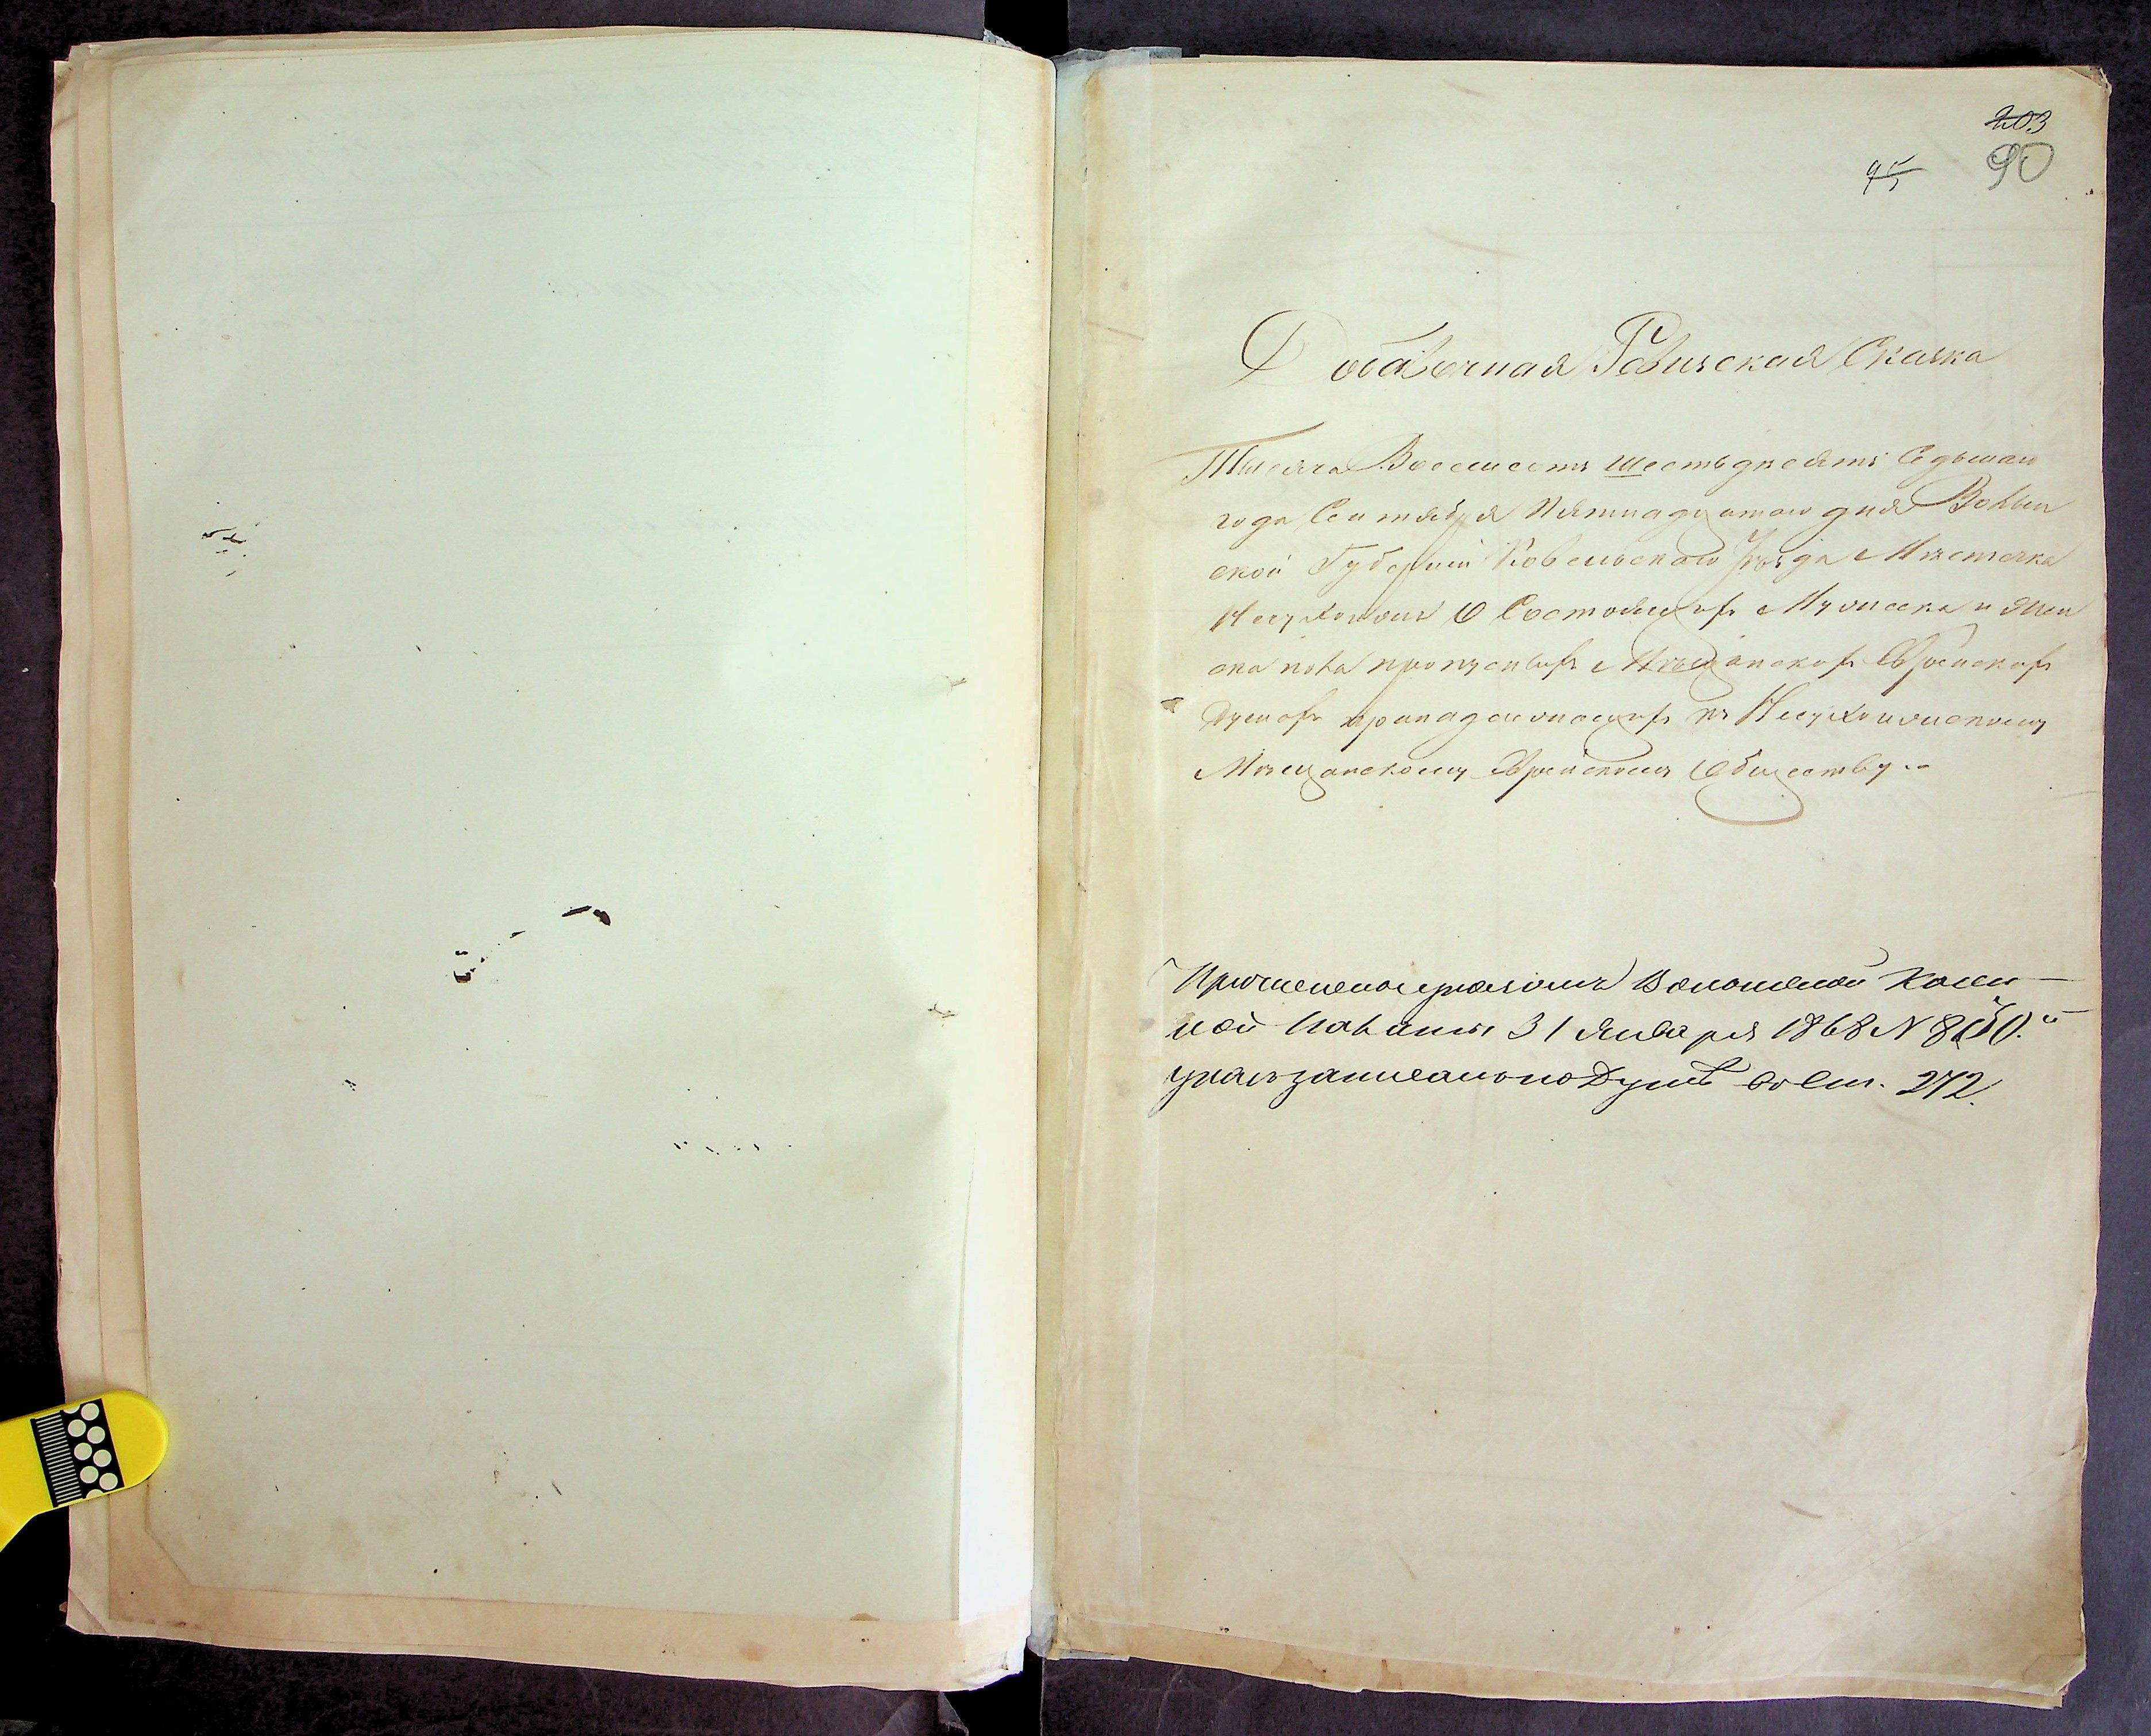 203
95 90
Добавочная Ревизская Сказка
Тысяча Восемсотъ шестьдесятъ Седьмаго
года Сентября Пятнадцатого дня Волын
ской Губерніи Ковельскаго Уѣзда Мѣстечка
Несухоижъ О Состоящихъ Мужеска и жен
ска пола пропускныхъ Мѣщанскихъ Еврейскихъ
Душахъ принадлежащихъ къ Несухоижскому
Мѣщанскому Еврейскому Обществу..
Причислено указомъ Волынской Казен
ной Палаты 31 Января 1868 N 850.
указ записано по Душ во ст. 272.